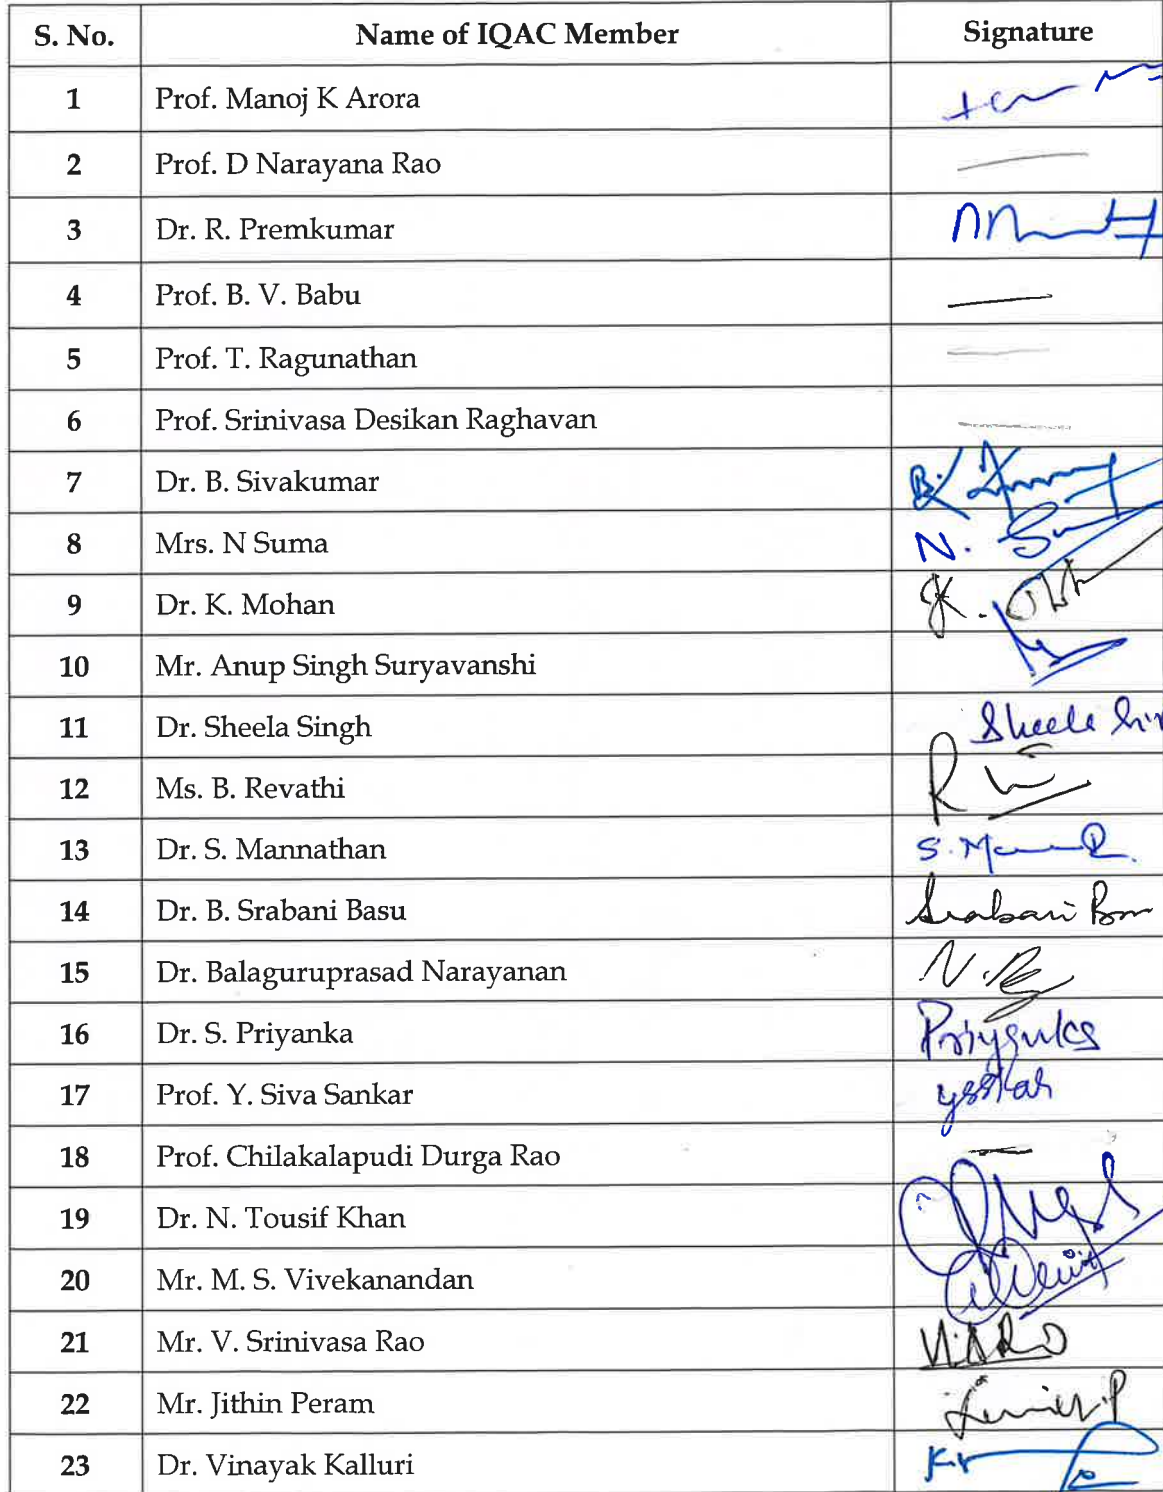 S. No. Name of IQAC Member Signature
1 Prof. Manoj K Arora
2 Prof. D Narayana Rao —
3 Dr. R. Premkumar
4 Prof. B. V. Babu —
5 Prof. T. Ragunathan —
6 Prof. Srinivasa Desikan Raghavan —
7 Dr. B. Sivakumar
8 Mrs. N Suma N.
9 Dr. K. Mohan K.
10 Mr. Anup Singh Suryavanshi
11 Dr. Sheela Singh Sheela
12 Ms. B. Revathi
13 Dr. S. Mannathan S.
14 Dr. B. Srabani Basu Srabani
15 Dr. Balaguruprasad Narayanan
16 Dr. S. Priyanka Priyanka
17 Prof. Y. Siva Sankar
18 Prof. Chilakalapudi Durga Rao —
19 Dr. N. Tousif Khan
20 Mr. M. S. Vivekanandan
21 Mr. V. Srinivasa Rao
22 Mr. Jithin Peram
23 Dr. Vinayak Kalluri